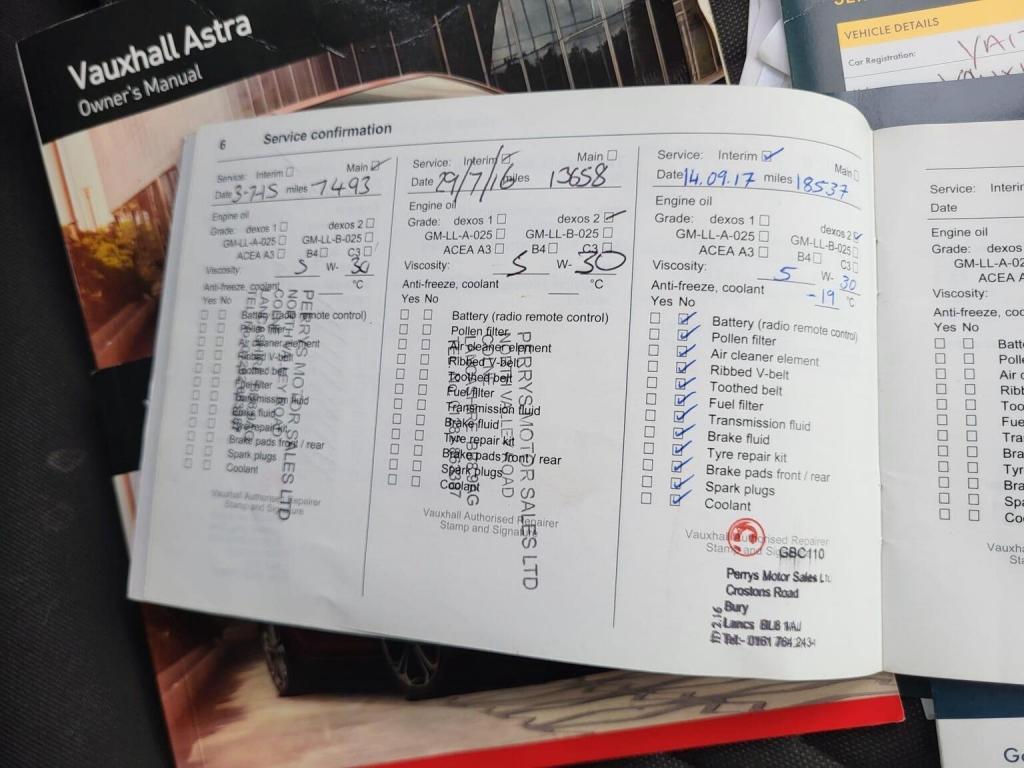 Vauxhall Astra
Owner's Manual
VEHICLE DETAILS
Car Registration:
6 Service confirmation
Service: Interim Main
Date 3-7-15 miles 7493
Engine oil
Grade: dexos 1 dexos 2
GM-LL-A-025 GM-LL-B-025
ACEA A3 B4 C3
Viscosity: 5 W- 30
Anti-freeze, coolant °C
Yes No
Battery (radio remote control)
Pollen filter
Air cleaner element
Ribbed V-belt
Toothed belt
Fuel filter
Transmission fluid
Brake fluid
Tyre repair kit
Brake pads front / rear
Spark plugs
Coolant
Vauxhall Authorised Repairer
Stamp and Signature
PERRYS MOTOR SALES LTD
Service: Interim Main
Date 29/7/16 miles 13658
Engine oil
Grade: dexos 1 dexos 2
GM-LL-A-025 GM-LL-B-025
ACEA A3 B4 C3
Viscosity: 5 W- 30
Anti-freeze, coolant °C
Yes No
Battery (radio remote control)
Pollen filter
Air cleaner element
Ribbed V-belt
Toothed belt
Fuel filter
Transmission fluid
Brake fluid
Tyre repair kit
Brake pads front / rear
Spark plugs
Coolant
Vauxhall Authorised Repairer
Stamp and Signature
PERRYS MOTOR SALES LTD
Service: Interim Main
Date 14.09.17 miles 18537
Engine oil
Grade: dexos 1 dexos 2
GM-LL-A-025 GM-LL-B-025
ACEA A3 B4 C3
Viscosity: 5 W- 30
Anti-freeze, coolant -19 °C
Yes No
Battery (radio remote control)
Pollen filter
Air cleaner element
Ribbed V-belt
Toothed belt
Fuel filter
Transmission fluid
Brake fluid
Tyre repair kit
Brake pads front / rear
Spark plugs
Coolant
Vauxhall Authorised Repairer
Stamp and
GBC110
Perrys Motor Sales Ltd
Crostons Road
Bury
Lancs BL8 1AJ
Tel:- 0161 764 2434
Service: Interim
Date
Engine oil
Grade: dexos
GM-LL-A-02
ACEA A
Viscosity:
Anti-freeze, coo
Yes No
Batte
Polle
Air c
Ribb
Too
Fue
Tra
Bra
Tyr
Bra
Spa
Co
Vauxha
Sta